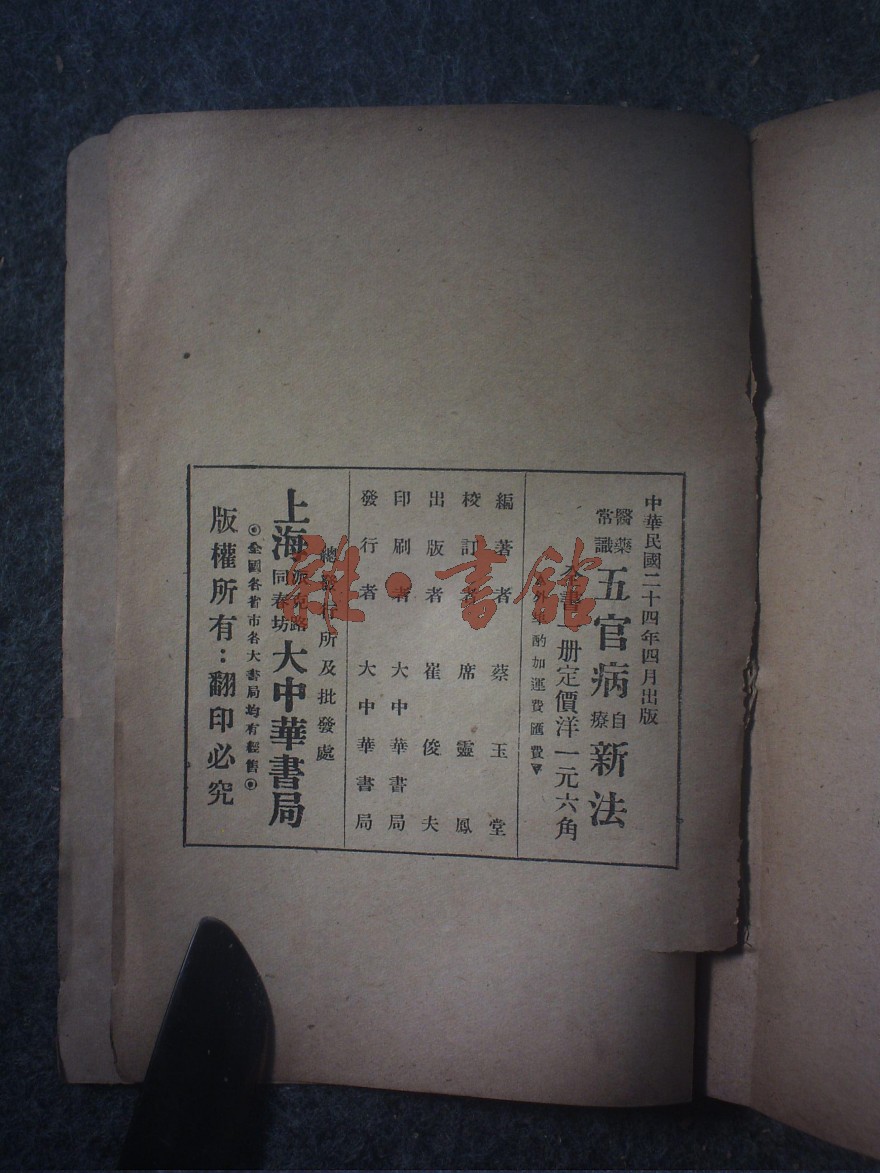 中華民國二十四年四月出版
醫藥常識 五官病自療新法
全書一册定價洋一元六角
外埠酌加運費匯費
編著者 蔡玉堂
校訂者 席靈鳳
出版者 崔俊夫
印刷者 大中華書局
發行者 大中華書局
總發行所及批發處
上海派克路同春坊大中華書局
◎全國各省市各大書局均有經售◎
版權所有：翻印必究
雜·書館